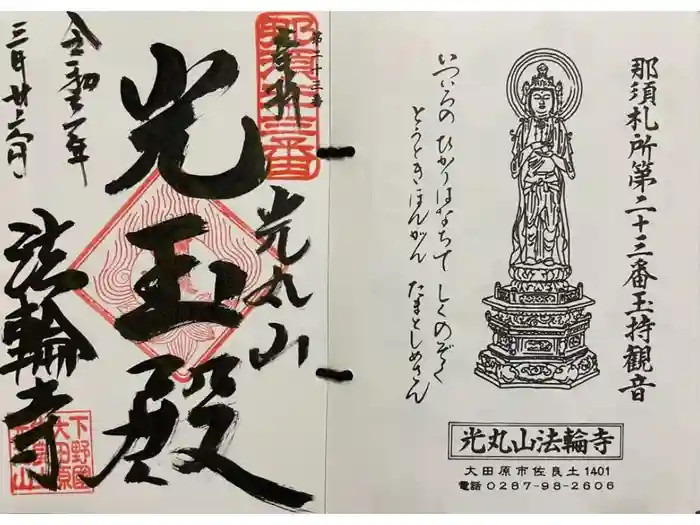 那須札所第二十三番玉持観音
いついろの ひかりはなちて しくのぞく
とうときほんがん たまとしめさん
光丸山法輪寺
大田原市佐良土1401
電話0287-98-2606
第二十三番
奉拝
光丸山
光玉殿
法輪寺
令和二年
三月廿六日
下野国
大田原